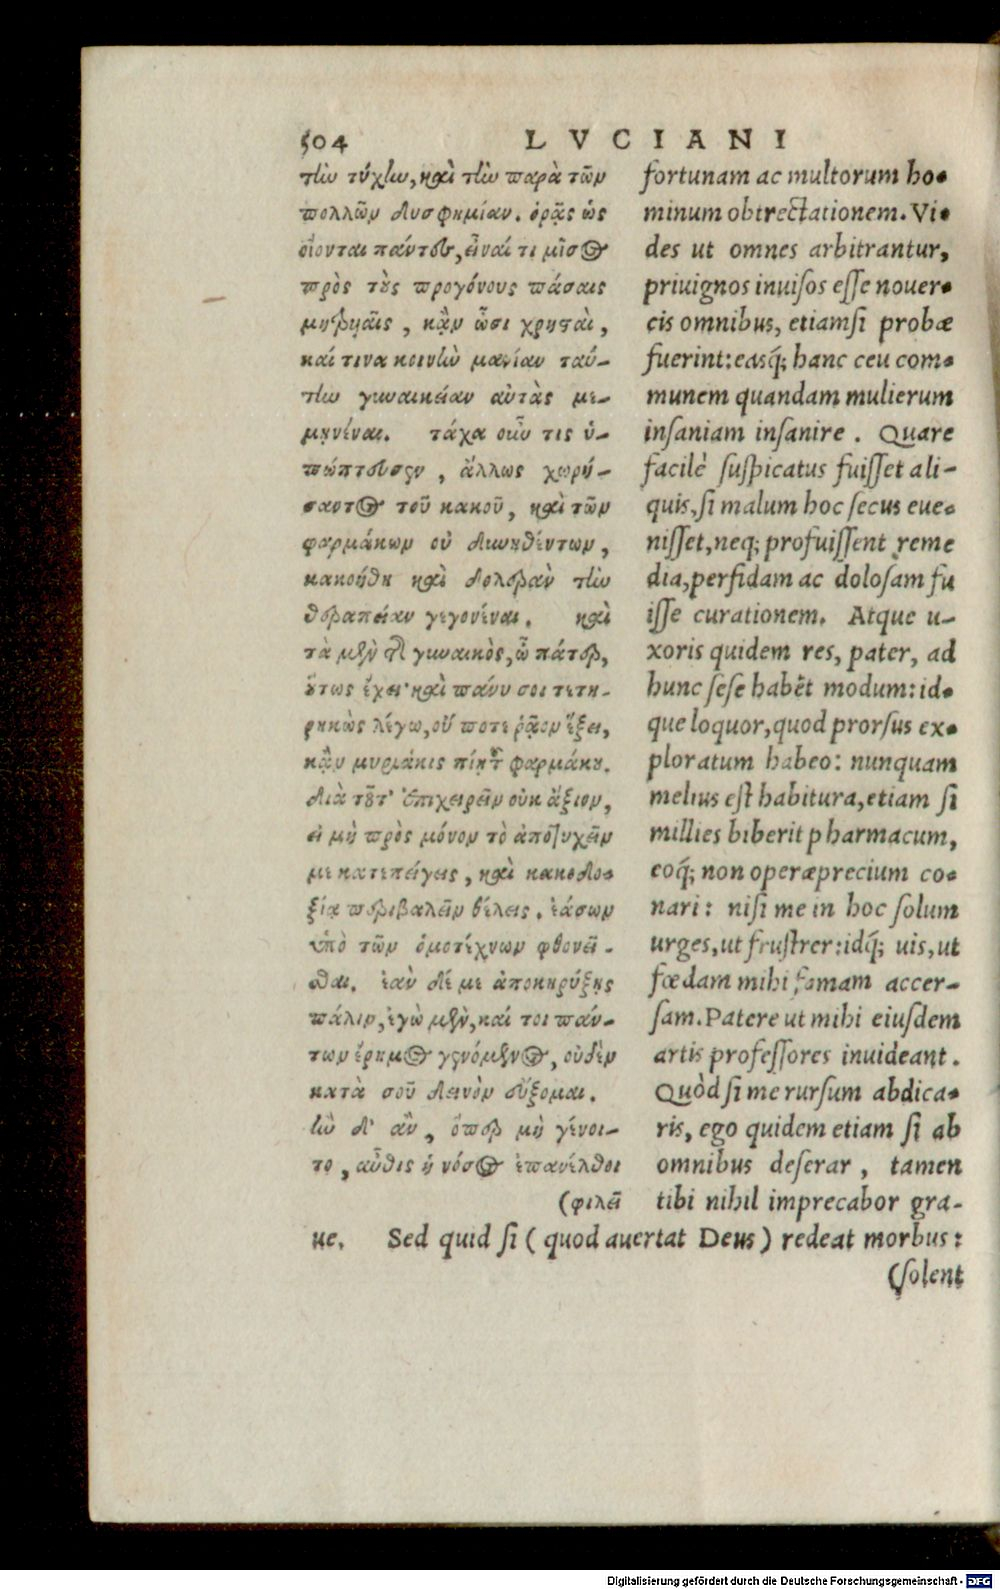 504 LVCIANI
τὴν τύχην, καὶ τὴν παρὰ τῶν
πολλῶν δυσφημίαν. ὁρᾷς ὡς
οἴονται πάντες, εἶναί τι μῖσος
πρὸς τοὺς προγόνους πάσαις
μητρυιαῖς, κἂν ὦσι χρησταὶ,
καί τινα κοινὴν μανίαν ταύ-
την γυναικείαν αὐτὰς με-
μηνέναι. τάχα οὖν τις ὑ-
πώπτευσεν, ἄλλως χωρή-
σαντος τοῦ κακοῦ, καὶ τῶν
φαρμάκων οὐ δυνηθέντων,
κακοήθη καὶ δολερὰν τὴν
θεραπείαν γεγονέναι. καὶ
τὰ μὲν τῆς γυναικὸς, ὦ πάτερ,
οὕτως ἔχει· καὶ πάνυ σοι τετη-
ρηκὼς λέγω, οὔ ποτε ῥᾷον ἕξει,
κἂν μυριάκις πίῃ τοῦ φαρμάκου.
διὰ τοῦτ' ἐπιχειρεῖν οὐκ ἄξιον,
εἰ μὴ πρὸς μόνον τὸ ἀποτυχεῖν
με κατεπείγεις, καὶ κακοδο-
ξίᾳ περιβαλεῖν θέλεις. ἔασων
ὑπὸ τῶν ὁμοτέχνων φθονεῖ-
σθαι. ἐὰν δέ με ἀποκηρύξῃς
πάλιν, ἐγὼ μὲν, καί τοι πάν-
των ἔρημος γενόμενος, οὐδὲν
κατὰ σοῦ δεινὸν εὔξομαι.
ἢν δ' ἂν, ὅπερ μὴ γένοι-
το, αὖθις ἡ νόσος ἐπανέλθοι
(φιλεῖ
fortunam ac multorum ho-
minum obtrectationem. Vi-
des ut omnes arbitrantur,
priuignos inuisos esse nouer-
cis omnibus, etiamsi probæ
fuerint: easq́; hanc ceu com-
munem quandam mulierum
insaniam insanire. Quare
facilè suspicatus fuisset ali-
quis, si malum hoc secus eue-
nisset, neq; profuissent reme
dia, perfidam ac dolosam fu
isse curationem. Atque u-
xoris quidem res, pater, ad
hunc sese habēt modum: id-
que loquor, quod prorsus ex-
ploratum habeo: nunquam
melius est habitura, etiam si
millies biberit pharmacum,
eoq́; non operæprecium co-
nari: nisi me in hoc solum
urges, ut frustrer: idq́; uis, ut
fœdam mihi famam accer-
sam. Patere ut mihi eiusdem
artis professores inuideant.
Quòd si me rursum abdica-
ris, ego quidem etiam si ab
omnibus deserar, tamen
tibi nihil imprecabor gra-
ue. Sed quid si (quod auertat Deus) redeat morbus:
(solent
Digitalisierung gefördert durch die Deutsche Forschungsgemeinschaft - DFG